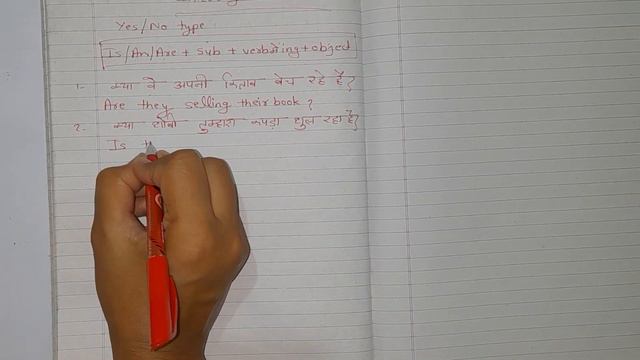 Yes/No type
Is/Am/Are + sub + verbमेंing + object
1- क्या वे अपनी किताब बेच रहे हैं?
Are they selling their book?
2- क्या धोबी तुम्हारा कपड़ा धुल रहा है?
Is